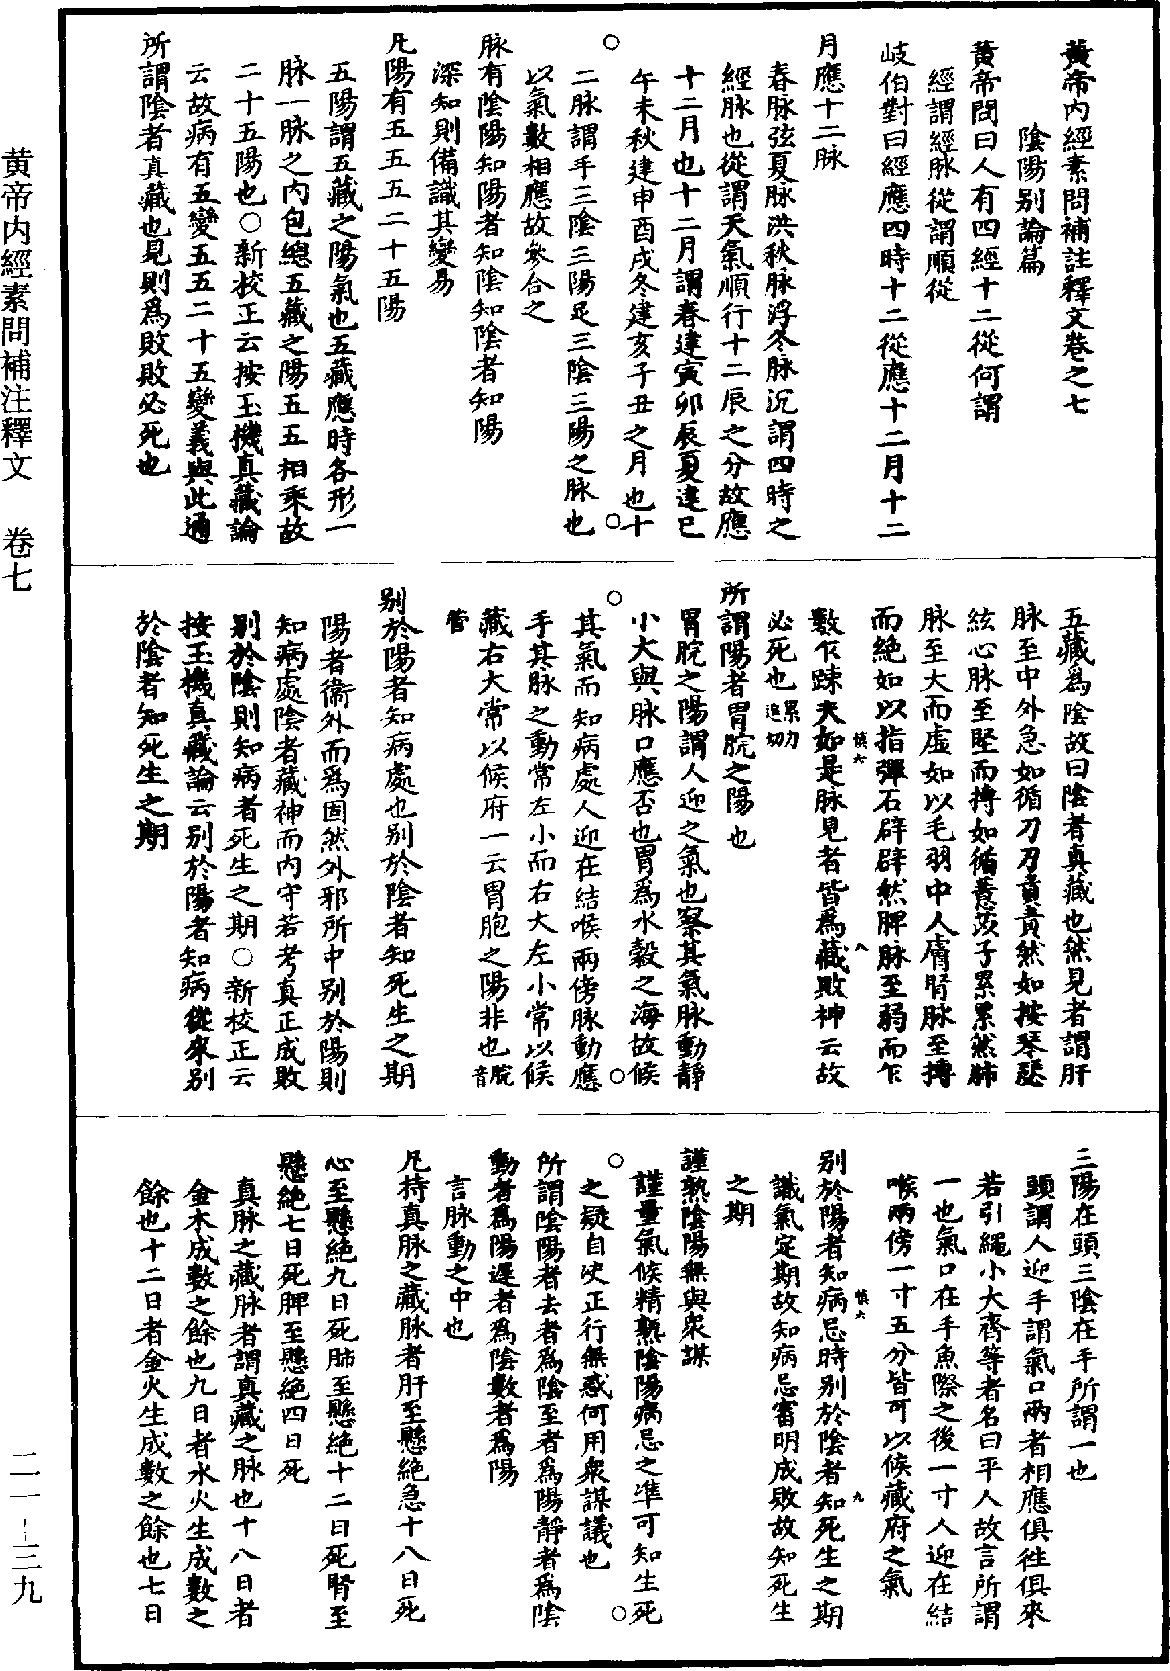 黃帝內經素問補註釋文卷之七
陰陽別論篇
黃帝問曰人有四經十二從何謂
經謂經脉從謂順從
岐伯對曰經應四時十二從應十二月十二
月應十二脉
春脉弦夏脉洪秋脉浮冬脉沉謂四時之
經脉也從謂天氣順行十二辰之分故應
十二月也十二月謂春建寅卯辰夏建巳
午未秋建申酉戌冬建亥子丑之月也十
二脉謂手三陰三陽足三陰三陽之脉也
以氣數相應故參合之
脉有陰陽知陽者知陰知陰者知陽
深知則備識其變易
凡陽有五五五二十五陽
五陽謂五藏之陽氣也五藏應時各形一
脉一脉之內包總五藏之陽五五相乘故
二十五陽也○新校正云按玉機真藏論
云故病有五變五五二十五變義與此通
所謂陰者真藏也見則爲敗敗必死也
五藏爲陰故曰陰者真藏也然見者謂肝
脉至中外急如循刀刃責責然如按琴瑟
絃心脉至堅而搏如循薏苡子累累然肺
脉至大而虛如以毛羽中人膚腎脉至搏
而絕如以指彈石辟辟然脾脉至弱而乍
數乍踈夫如是脉見者皆爲藏敗神去故
必死也
所謂陽者胃脘之陽也
胃脘之陽謂人迎之氣也察其氣脉動靜
小大與脉口應否也胃爲水穀之海故候
其氣而知病處人迎在結喉兩傍脉動應
手其脉之動常左小而右大左小常以候
藏右大常以候府一云胃胞之陽非也脘音
管
別於陽者知病處也別於陰者知死生之期
陽者衞外而爲固然外邪所中別於陽則
知病處陰者藏神而內守若考真正成敗
別於陰則知病者死生之期○新校正云
按玉機真藏論云別於陽者知病從來別
於陰者知死生之期
三陽在頭三陰在手所謂一也
頭謂人迎手謂氣口兩者相應俱往俱來
若引繩小大齊等者名曰平人故言所謂
一也氣口在手魚際之後一寸人迎在結
喉兩傍一寸五分皆可以候藏府之氣
別於陽者知病忌時別於陰者知死生之期
識氣定期故知病忌審明成敗故知死生
之期
謹熟陰陽無與衆謀
謹量氣候精熟陰陽病忌之準可知生死
之疑自決正行無惑何用衆謀議也
所謂陰陽者去者爲陰至者爲陽靜者爲陰
動者爲陽遲者爲陰數者爲陽
言脉動之中也
凡持真脉之藏脉者肝至懸絕急十八日死
心至懸絕九日死肺至懸絕十二日死腎至
懸絕七日死脾至懸絕四日死
真脉之藏脉者謂真藏之脉也十八日者
金木成數之餘也九日者水火生成數之
餘也十二日者金火生成數之餘也七日
黃帝內經素問補注釋文 卷七
二一—三九